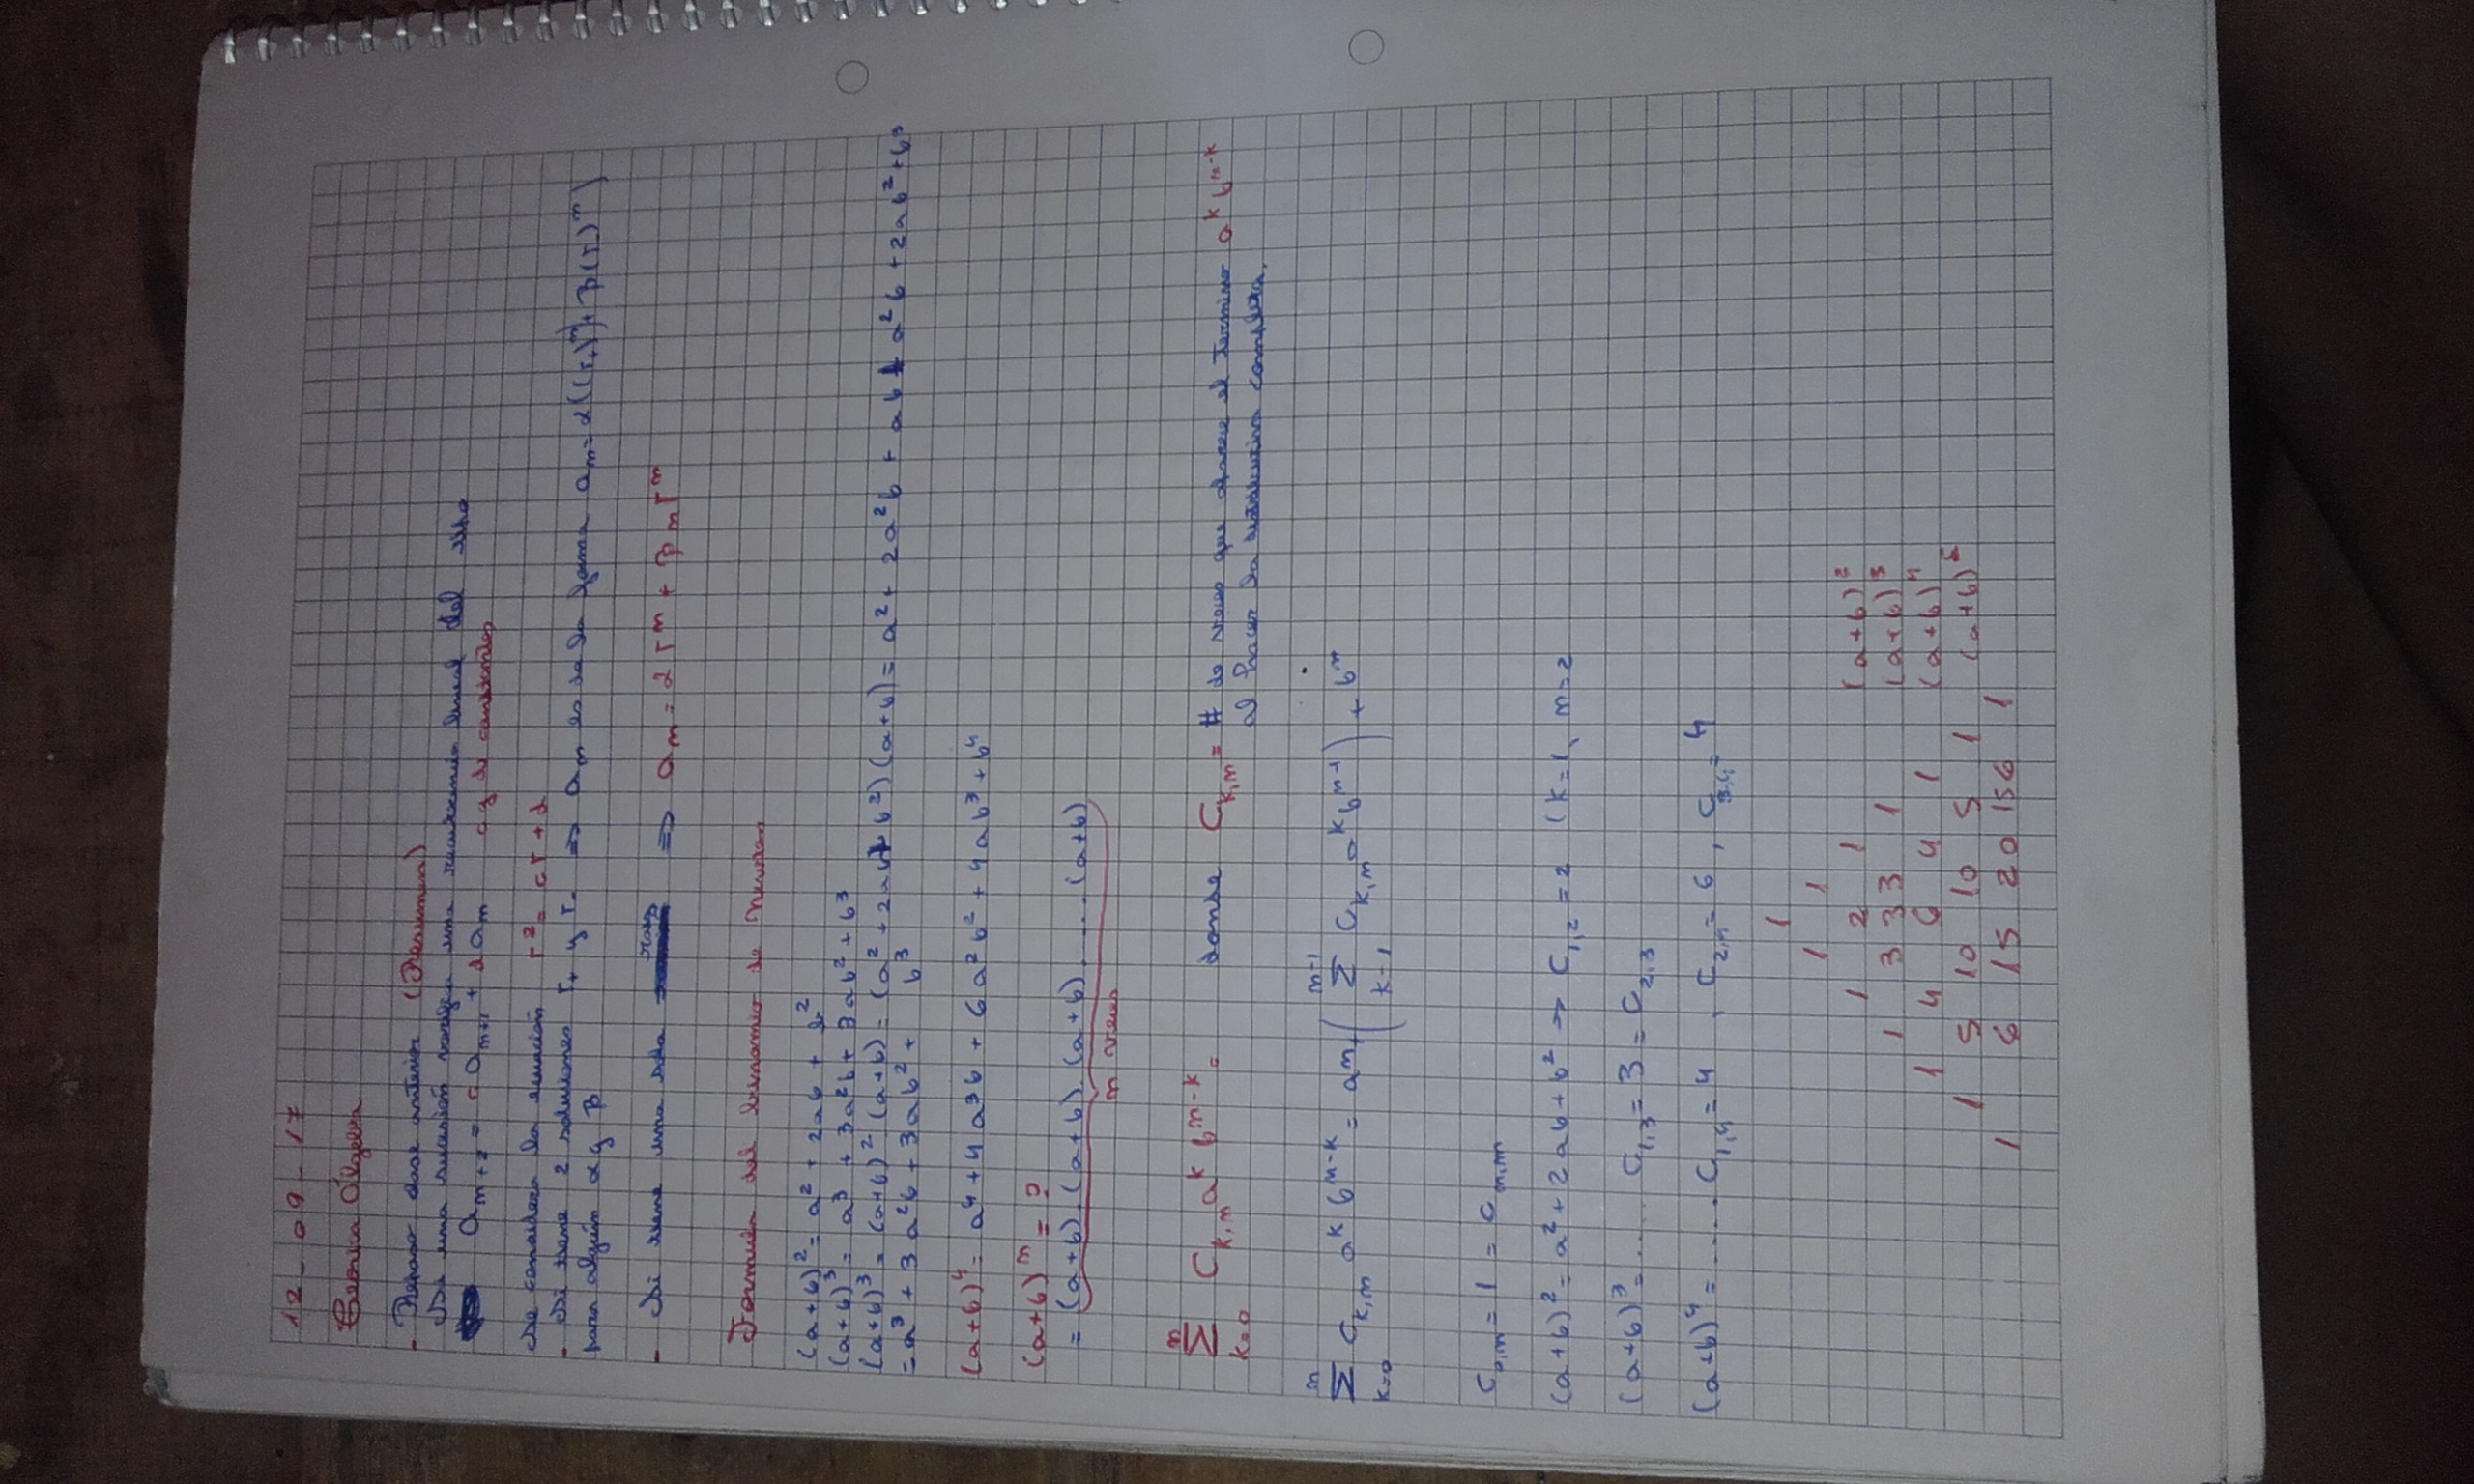 12-09-17
Teorica Algebra
- Repaso clase anterior (Resumen)
Si una sucesión verifica una recurrencia lineal del tipo
a_{n+2} = c a_{n+1} + d a_n c y d constantes
Se considera la ecuación r² = cr + d
- Si tiene 2 soluciones r₊ y r₋ ⇒ a_n es de la forma a_n = α((r₊)^n + β(r₋)^n)
para algún α y β
- Si tiene una sola raíz ⇒ a_n = α r^n + β n r^n
Formula del binomio de Newton
(a+b)² = a² + 2ab + b²
(a+b)³ = a³ + 3a²b + 3ab² + b³
(a+b)³ = (a+b)² (a+b) = (a² + 2ab + b²)(a+b) = a² + 2a²b + ab + a²b + 2ab² + b³
= a³ + 3a²b + 3ab² + b³
(a+b)⁴ = a⁴ + 4a³b + 6a²b² + 4ab³ + b⁴
(a+b)^n = ?
= (a+b).(a+b).(a+b)......(a+b)
n veces
∑_{k=0}^{n} C_{k,n} a^k b^{n-k} = donde C_{k,n} = # de veces que aparece el termino a^k b^{n-k}
al hacer la distributiva completa.
∑_{k=0}^{n} C_{k,n} a^k b^{n-k} = a^n + (∑_{k=1}^{n-1} C_{k,n} a^k b^{n-1}) + b^n
C_{0,n} = 1 = C_{n,n}
(a+b)² = a² + 2ab + b² → C_{1,2} = 2 (k=1, n=2
(a+b)³ = ..... C_{1,3} = 3 = C_{2,3}
(a+b)⁴ = ..... C_{1,4} = 4 , C_{2,4} = 6 , C_{3,4} = 4
1
1 1
1 2 1 (a+b)²
1 3 3 3 1 (a+b)³
1 4 6 4 1 (a+b)⁴
1 5 10 10 5 1 (a+b)⁵
1 6 15 20 15 6 1